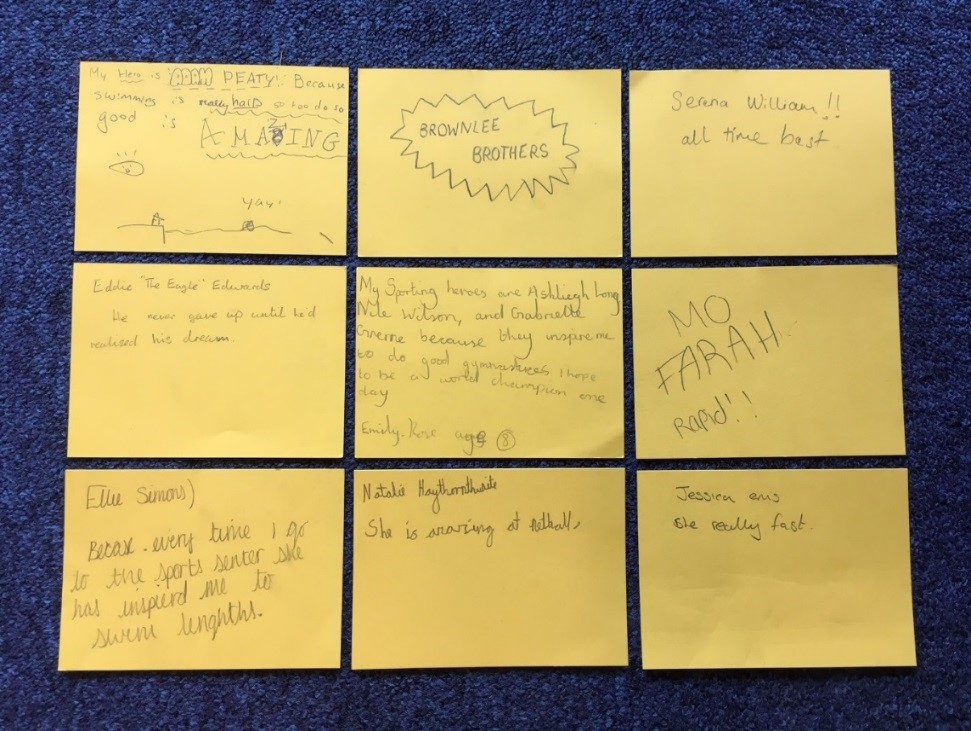 My Hero is ADAM PEATY! Because
swimming is really hard so too do so
good is
AMAZING
yay!
BROWNLEE
BROTHERS
Serena William!!
all time best
Eddie "The Eagle" Edwards
He never gave up until he'd
realised his dream.
My Sporting heroes are Ashliegh Long
Nile Wilson, and Gabrielle
because they inspire me
to do good gymnastices I hope
to be a world champion one
day
Emily-Rose age 8
MO
FARAH
rapid!!
Ellie Simons)
Becase every time I go
to the sports senter she
has inspierd me to
swim lenghths.
Natalie Haythornthwaite
She is amazing at netball,
Jessica enis
she really fast.